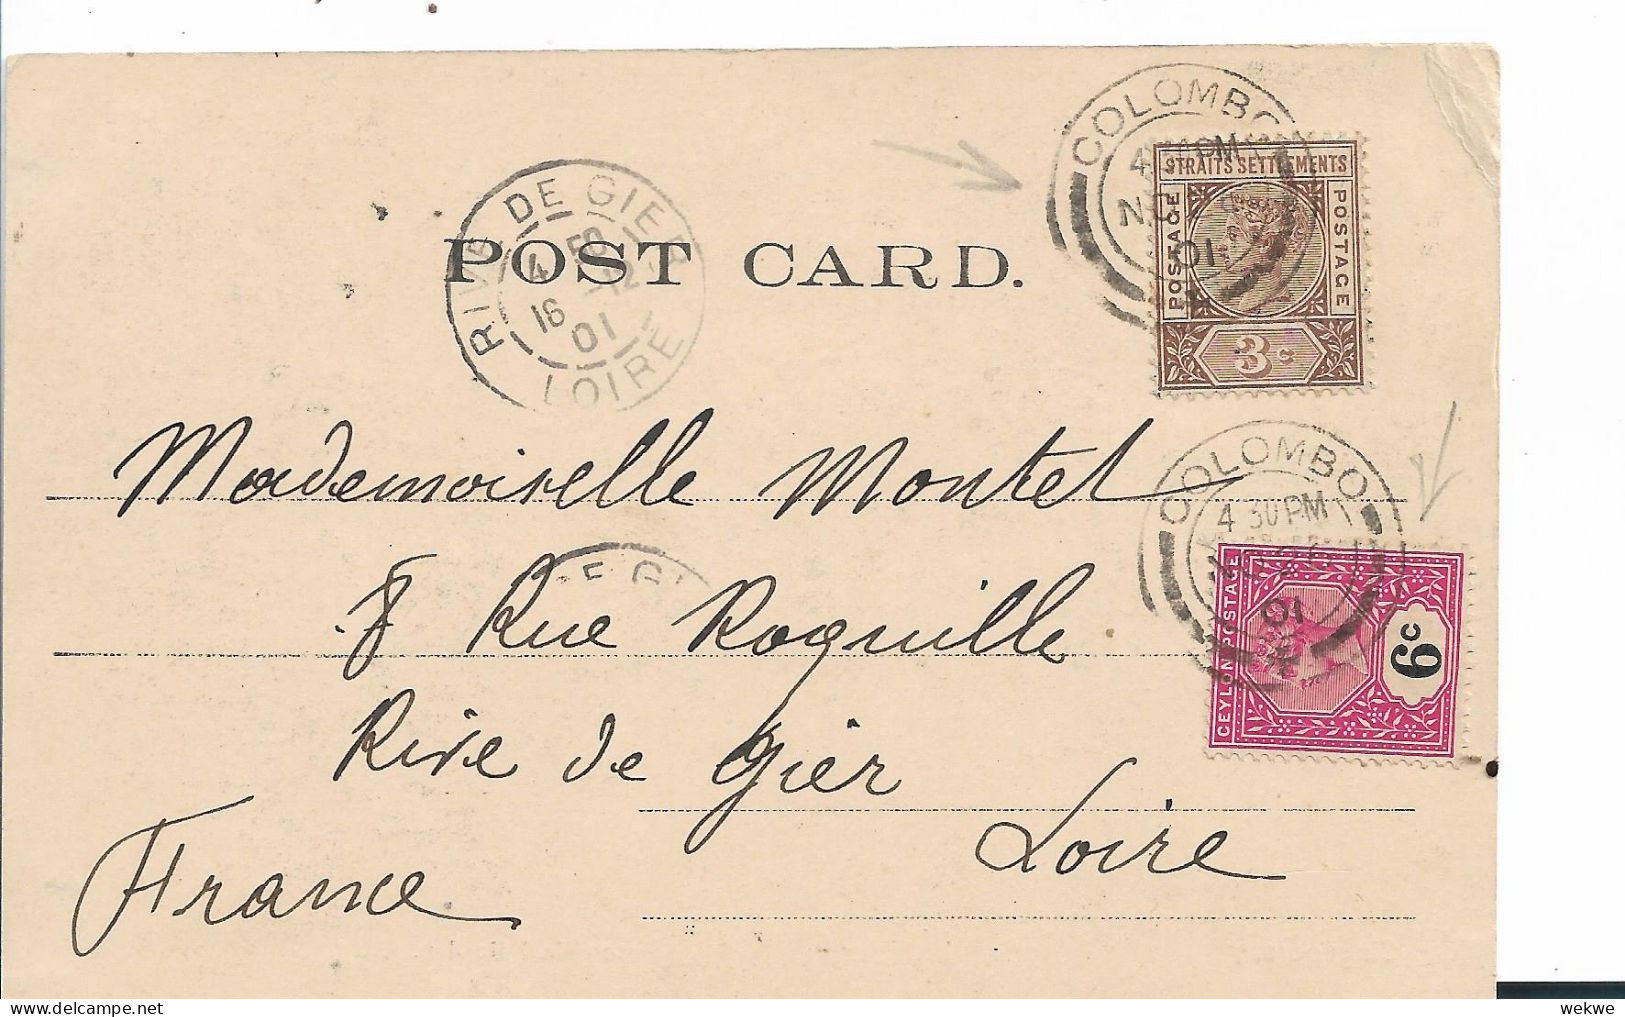 COLOMBO
4 30 PM
01
STRAITS SETTLEMENTS
POSTAGE
POSTAGE
3c
RIVE DE GIER
4 50
16 -12
01
LOIRE
POST CARD.
Mademoiselle Montet
COLOMBO
4 30 PM
01
CEYLON POSTAGE
6c
E GI
8 Rue Roquille
Rive de Gier
Loire
France.
wekwe